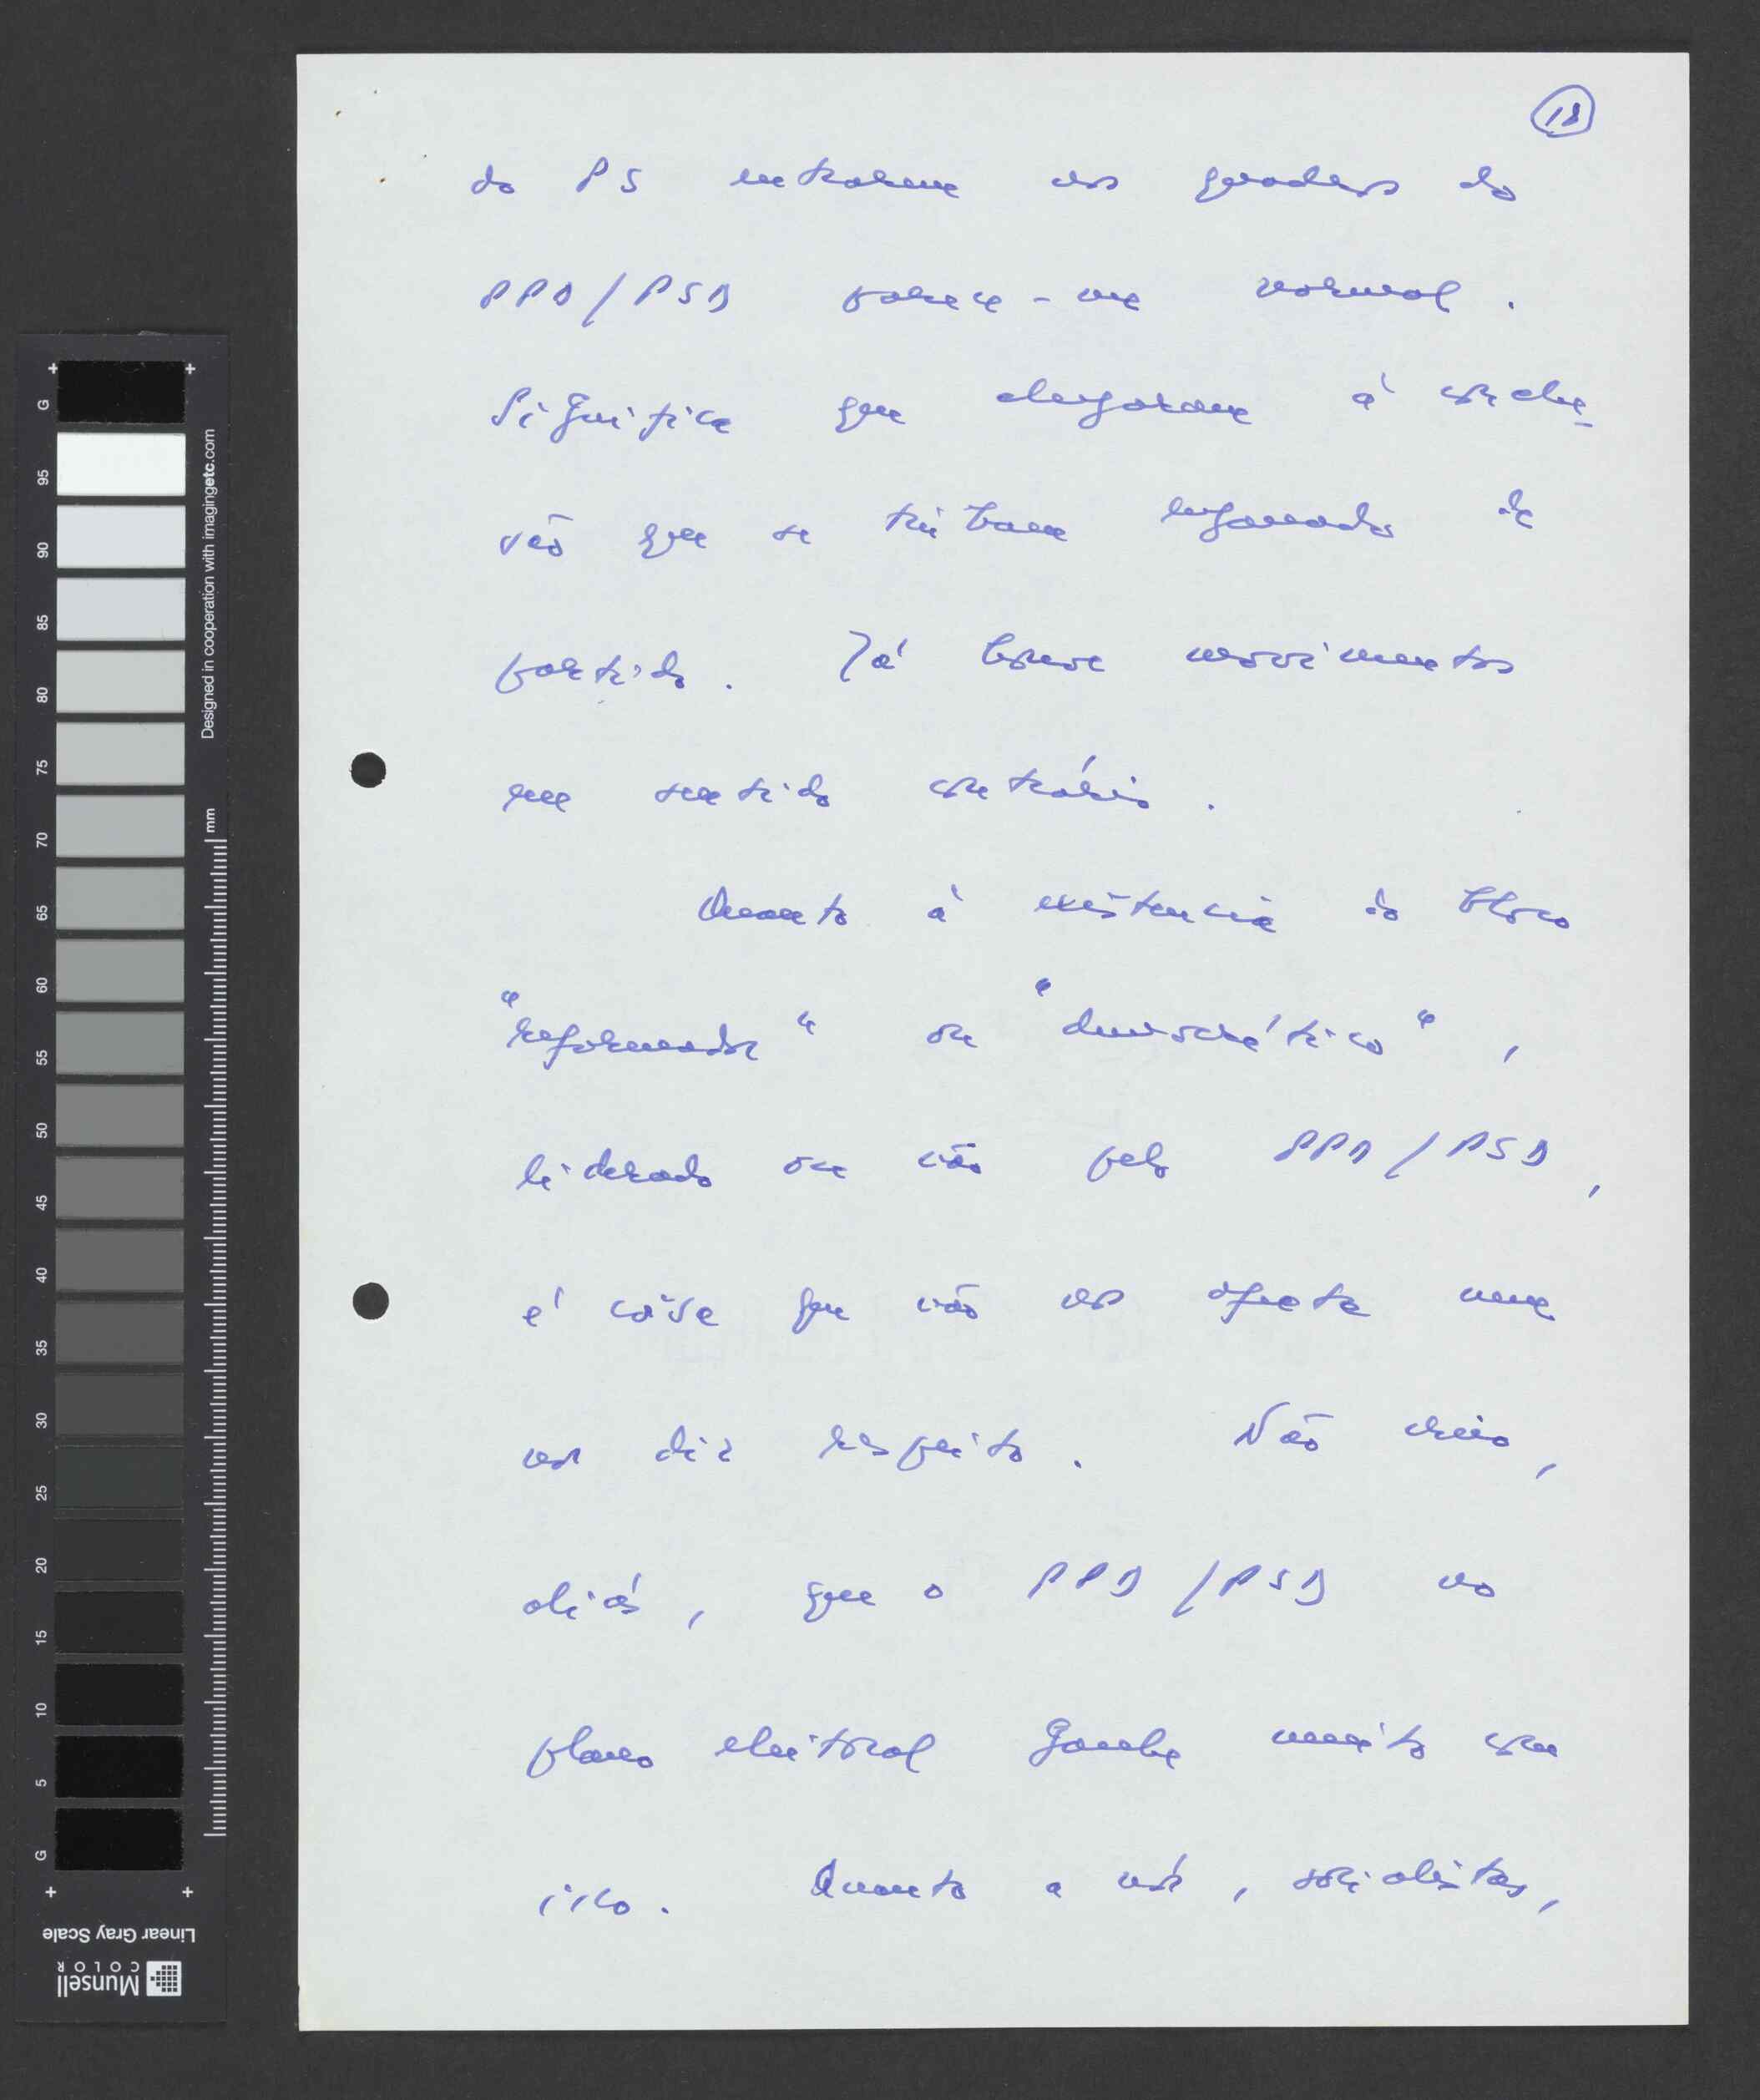 18
do PS entrarem nos quadros do
PPD/PSD parece-me normal.
Significa que chegaram à conclu-
são que se tinham enganado de
partido. Já houve movimentos
em sentido contrário.
Quanto à existência do bloco
"reformador" ou "democrático",
liderado ou não pelo PPD/PSD,
é coisa que não nos afecta nem
nos diz respeito. Não creio,
aliás, que o PPD/PSD no
plano eleitoral ganhe muito com
isso. Quanto a nós, socialistas,
G 95 90 85 80 75 70 65 60 55 50 45 40 35 30 25 20 15 10 5 G
Designed in cooperation with imagingetc.com
mm
Linear Gray Scale
Munsell
COLOR